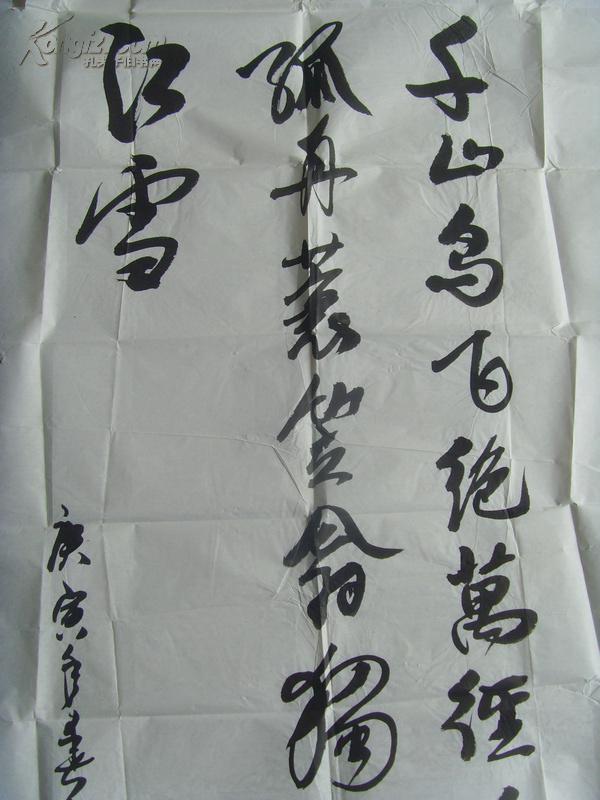 千山鸟百绝萬徑
孤舟蓑笠翁獨
江雪
庚寅年春
Kongfz.com
孔夫子旧书网